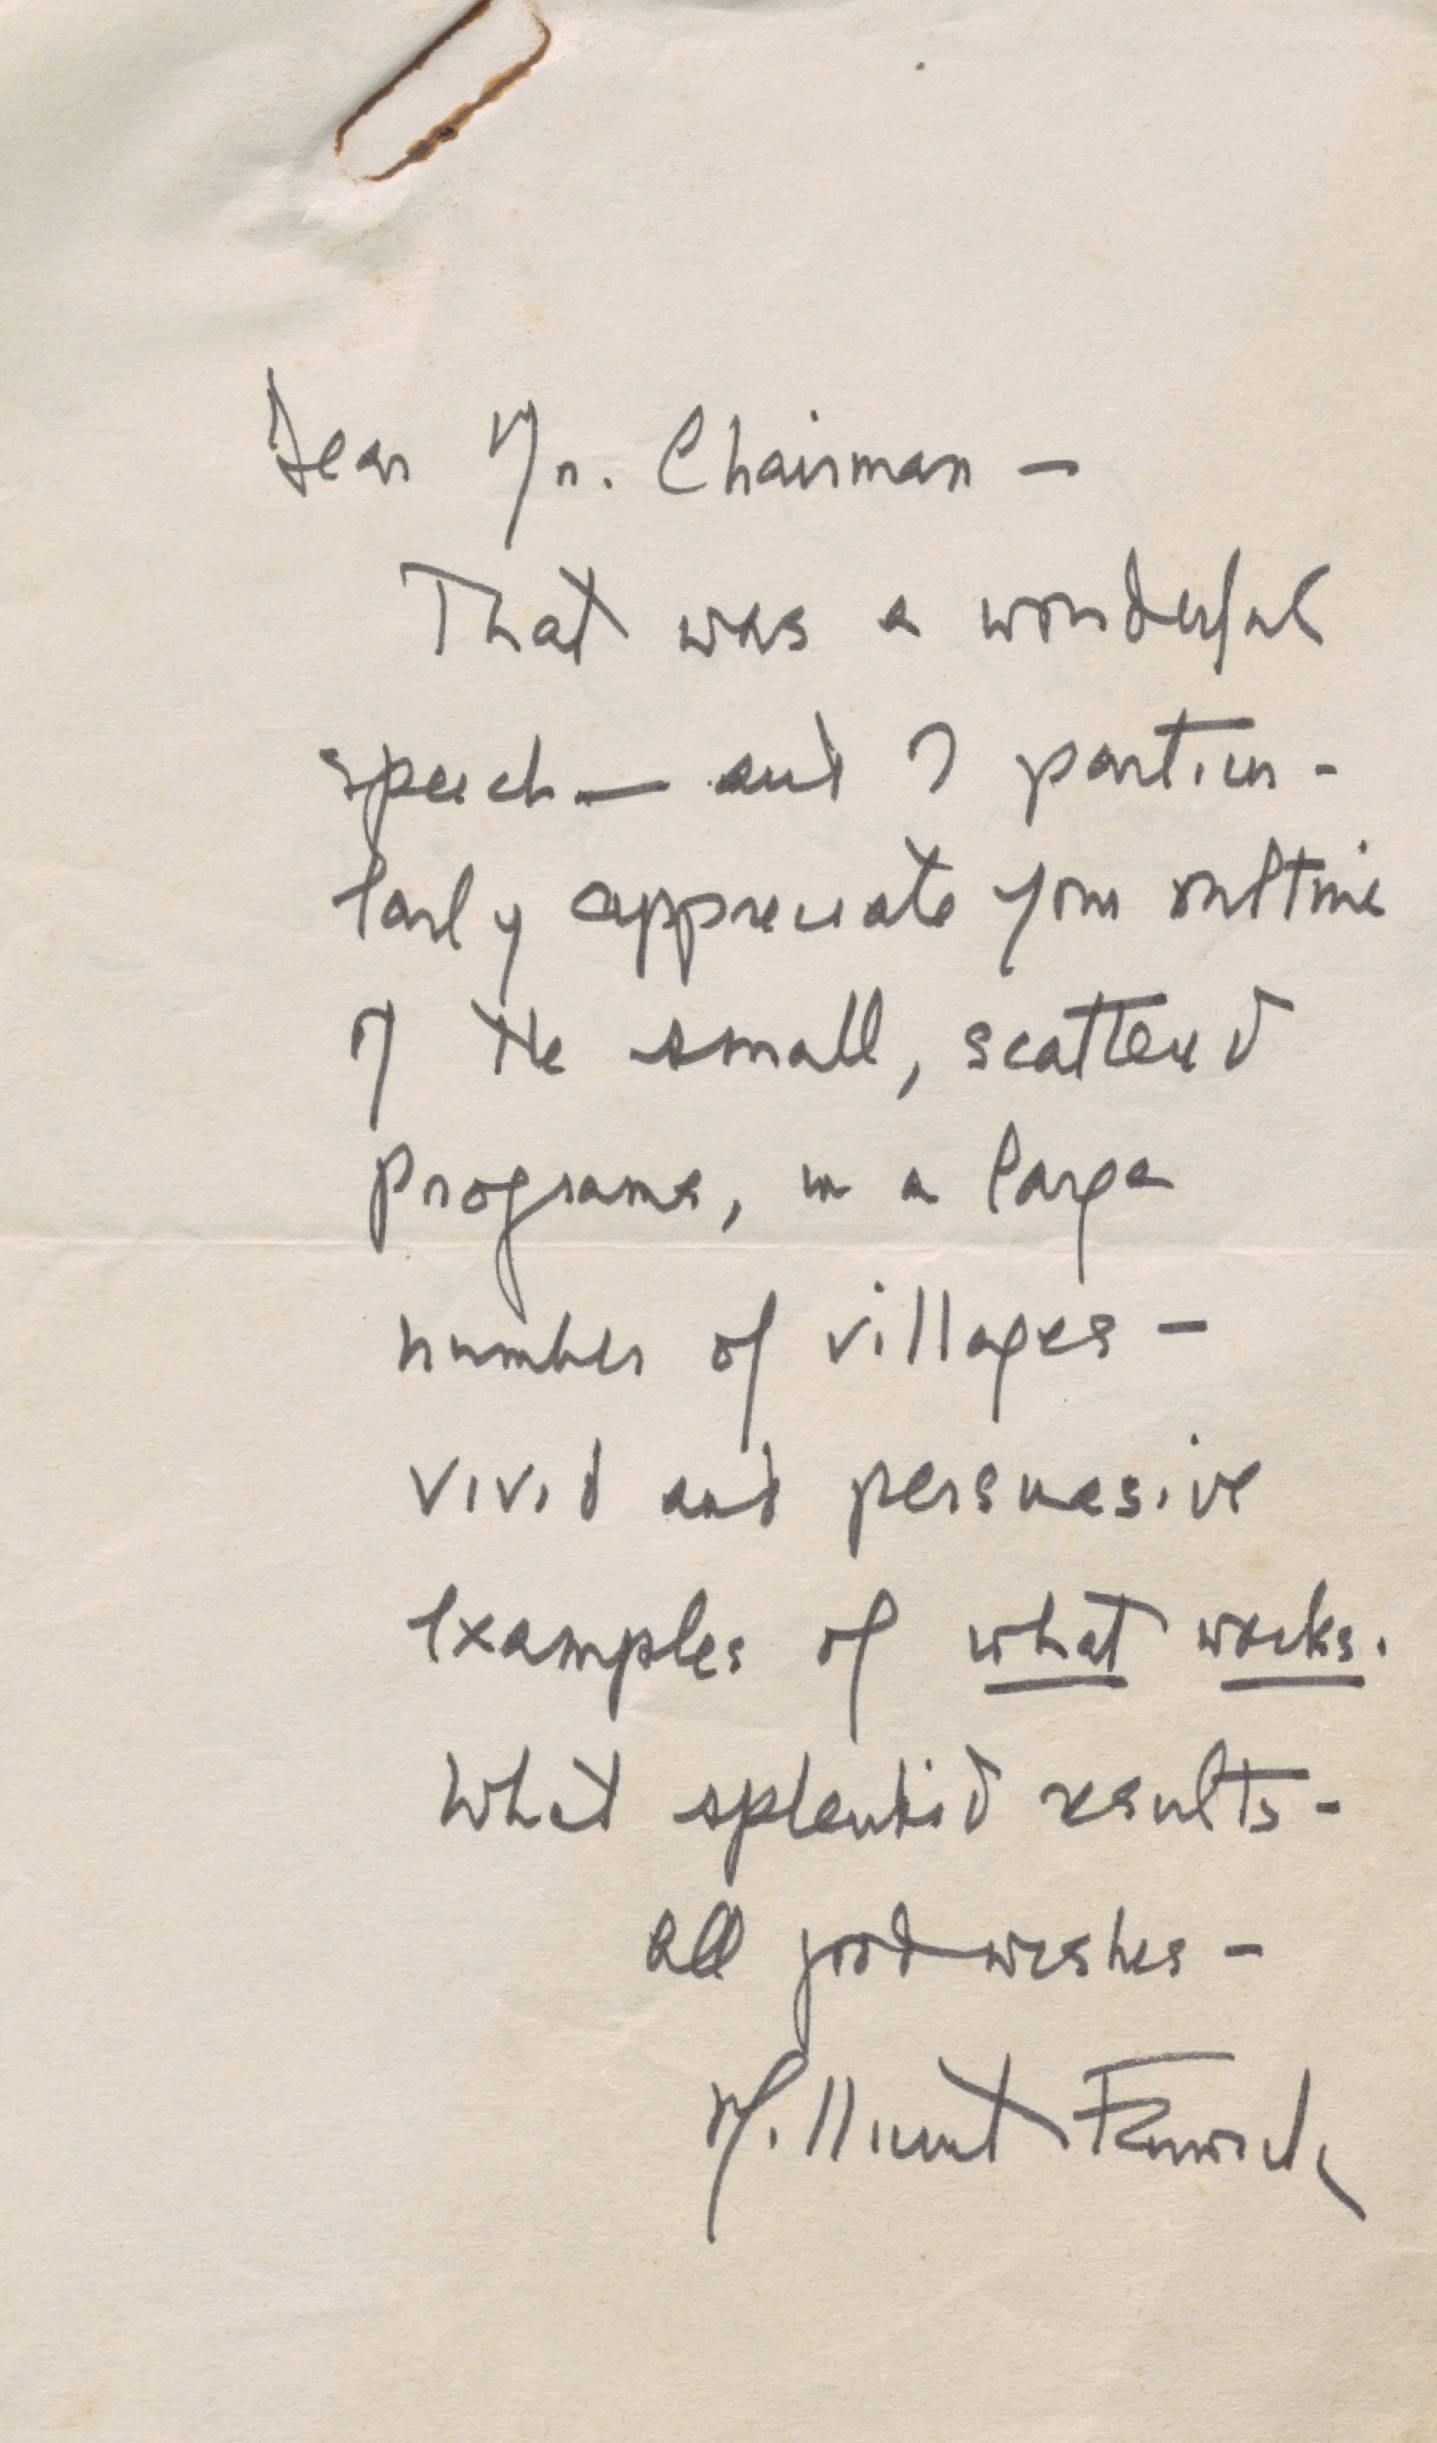 Dear Mr. Chairman —
That was a wonderful
speech — and I particu-
larly appreciate your outline
of the small, scattered
programs, in a large
number of villages —
vivid and persuasive
examples of what works.
What splendid results -
all good wishes -
Millicent Fenwick